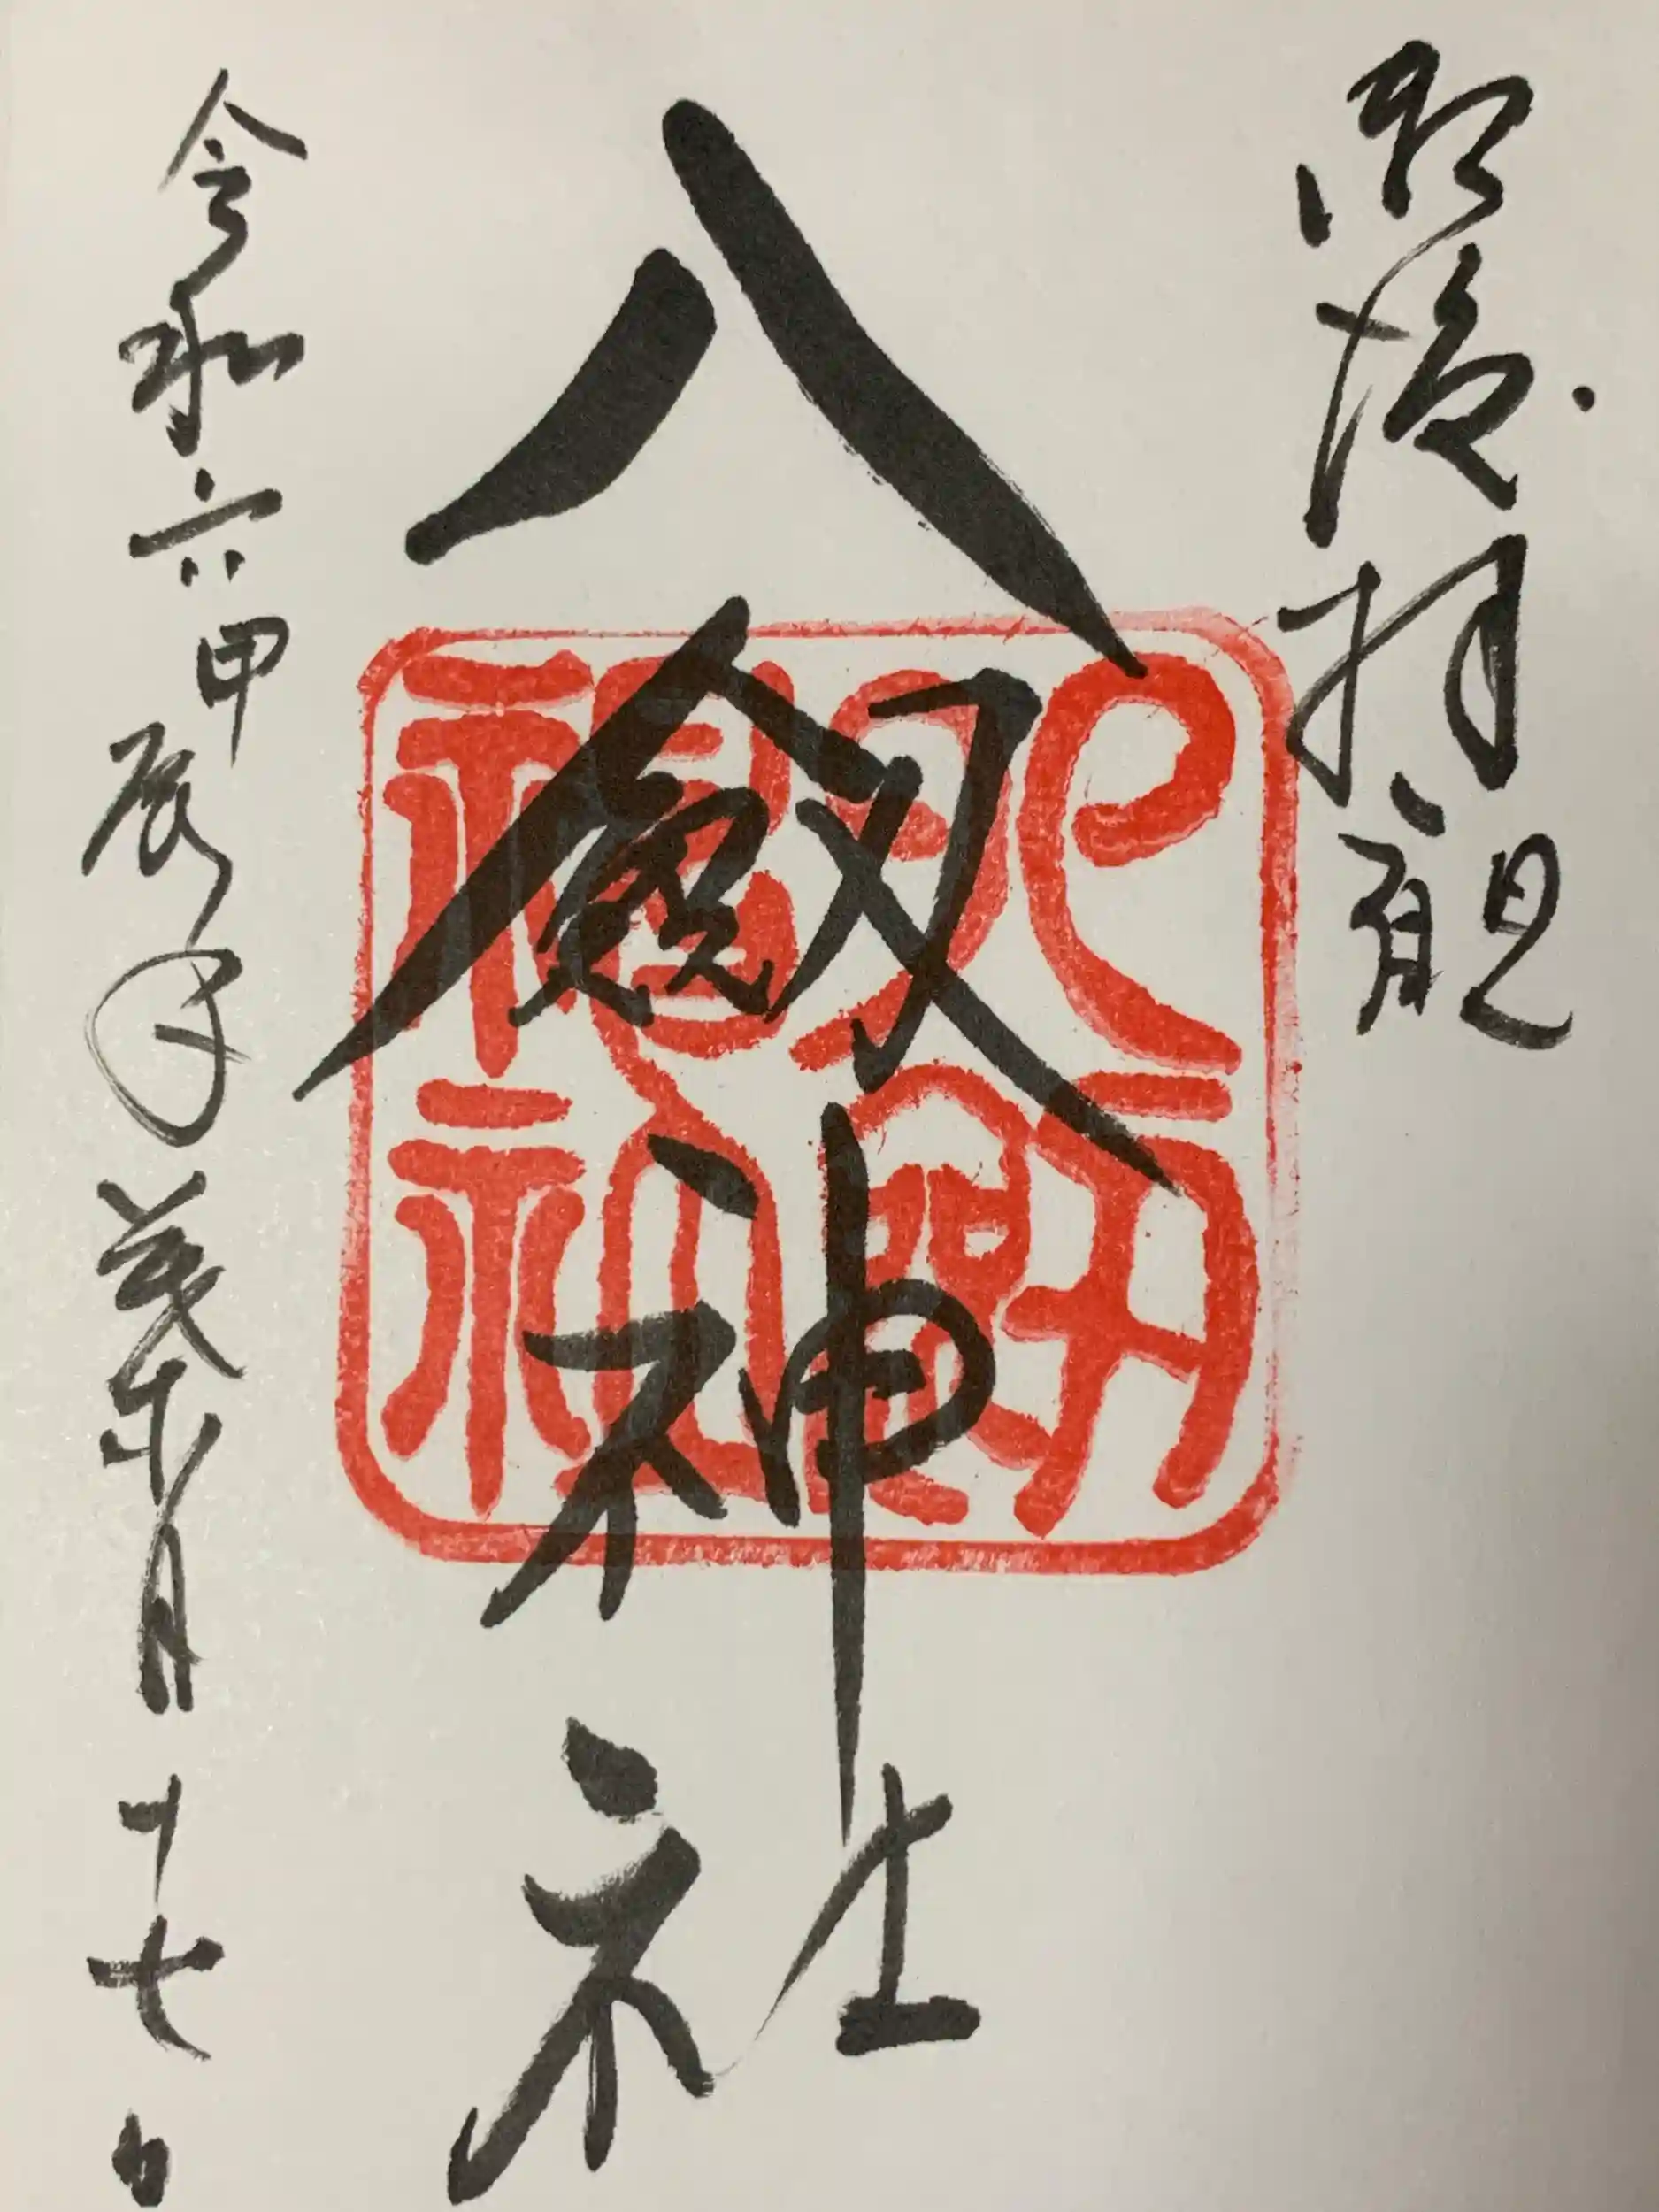 御渡拝観
八劒神社
八劔神社
令和六甲辰年葉月十七日